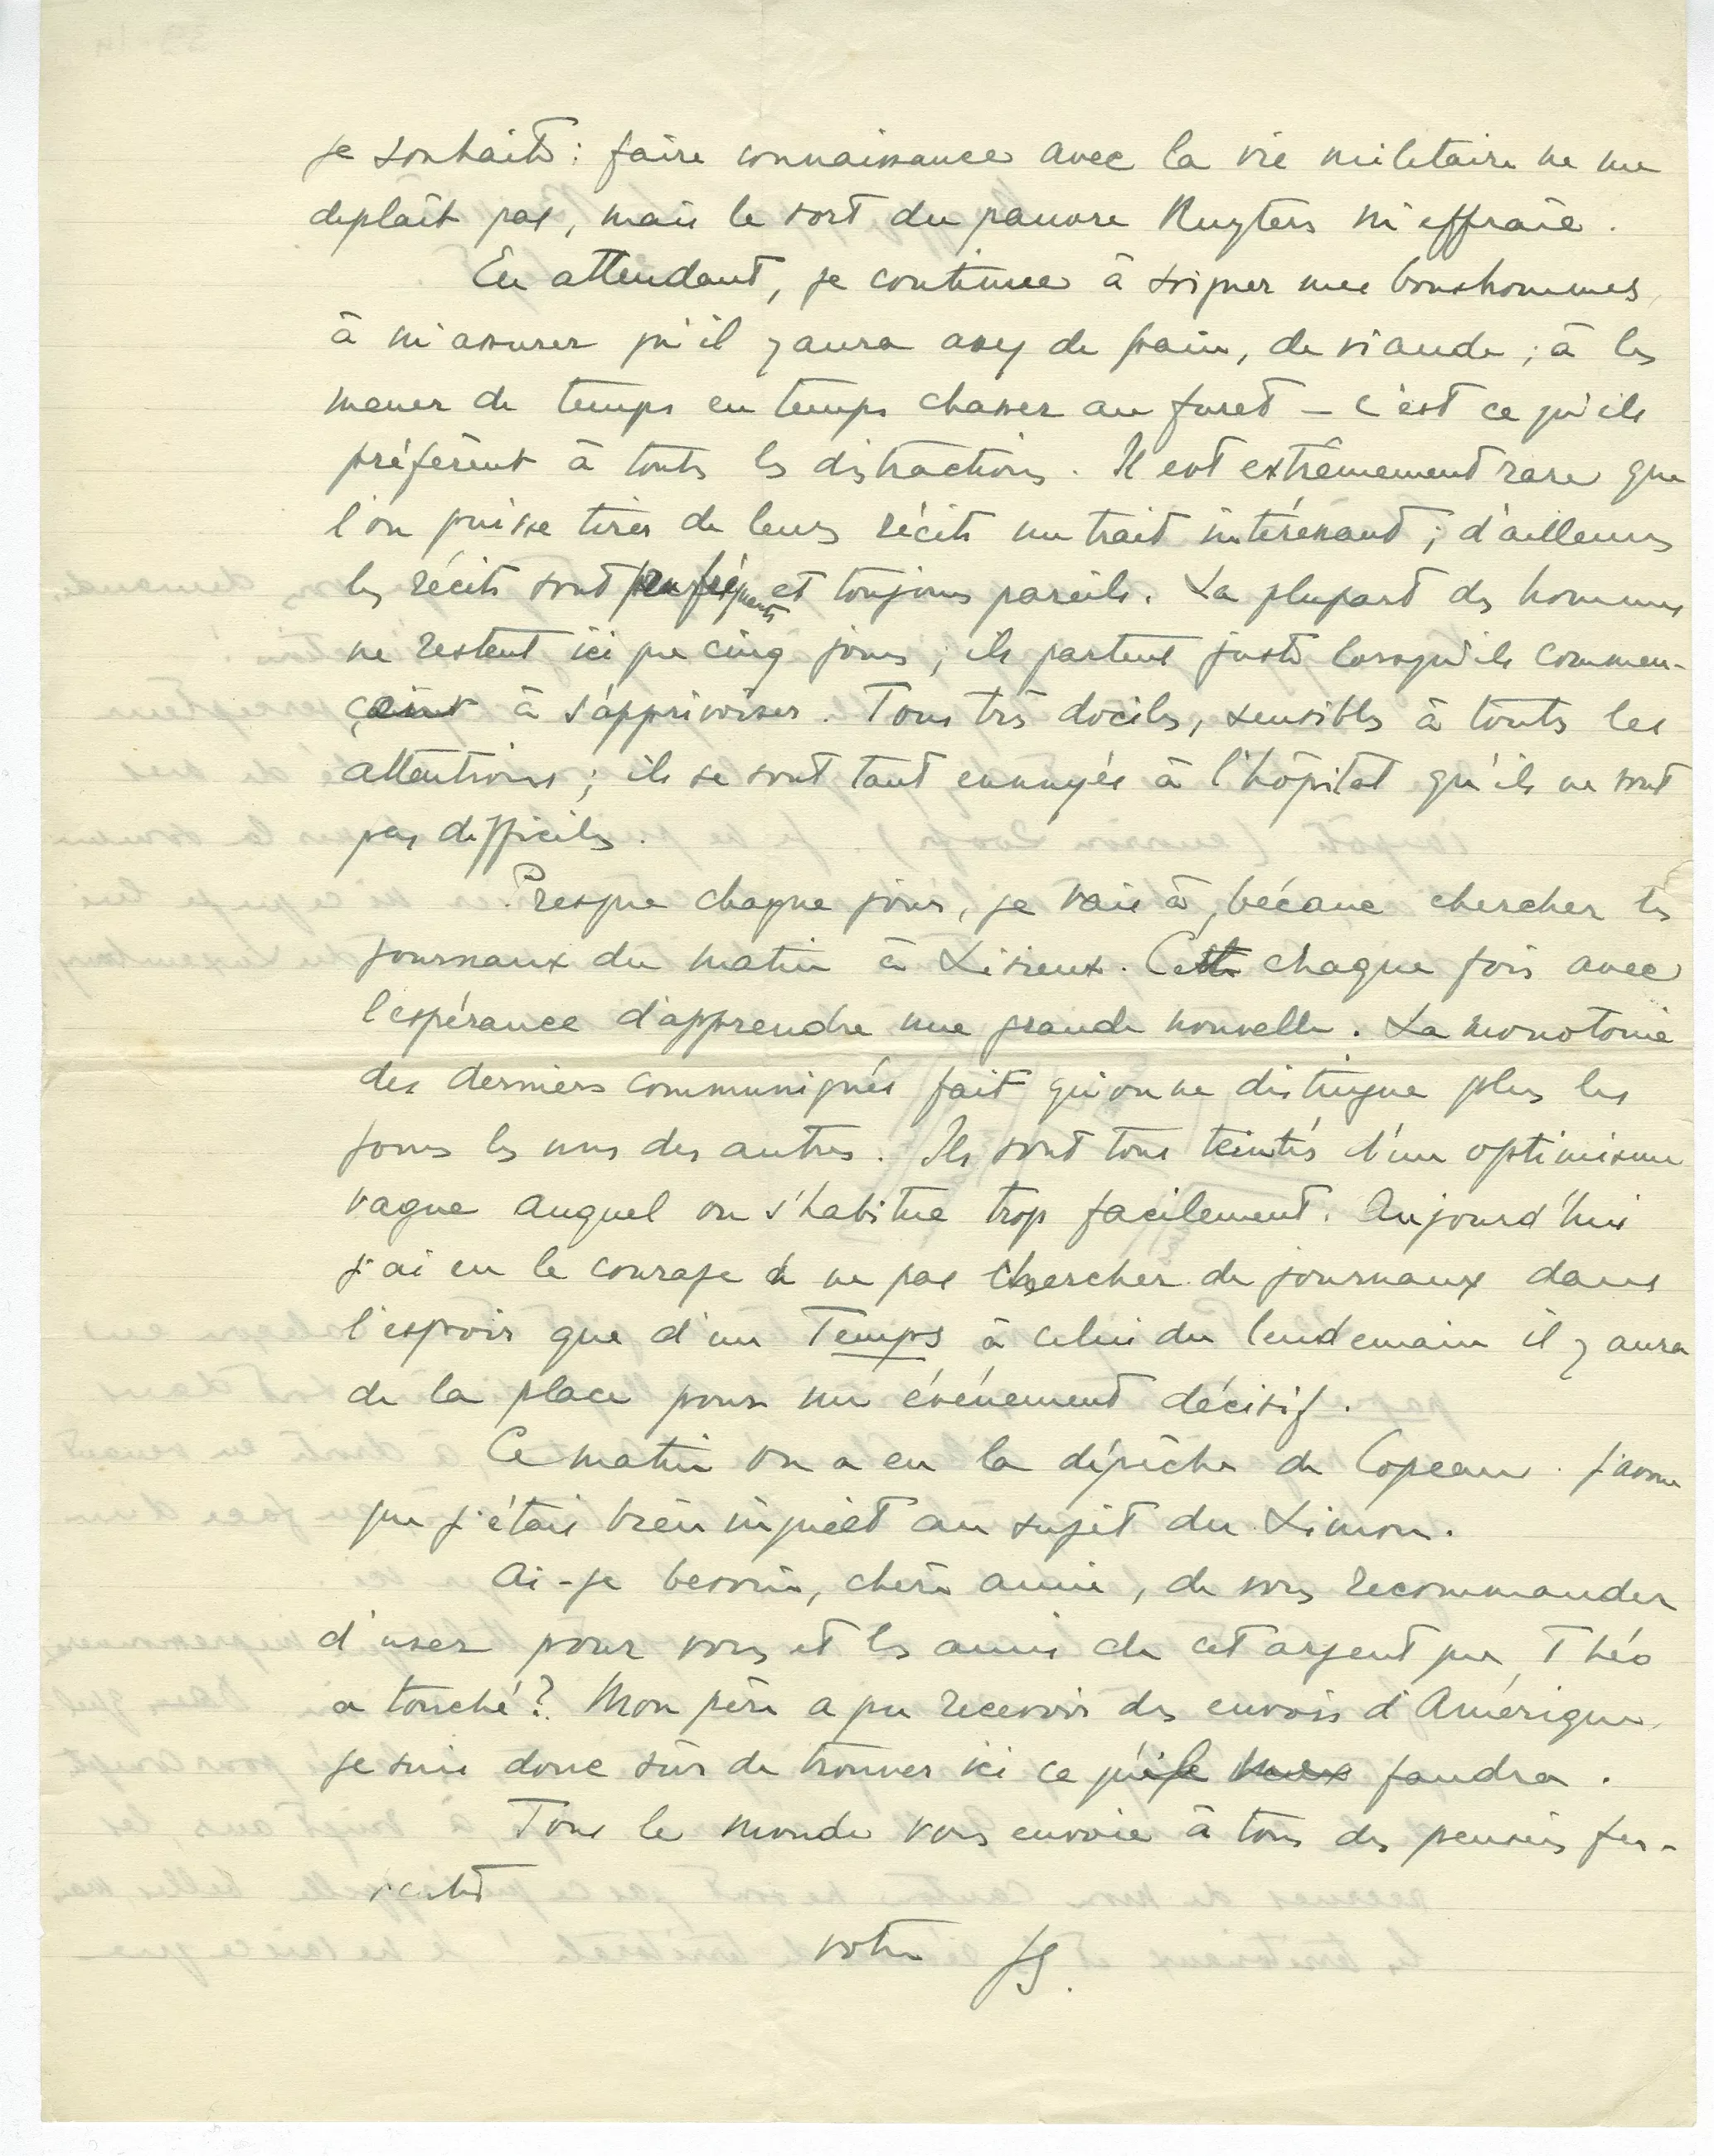 je souhaite : faire connaissance avec la vie militaire ne me
déplaît pas, mais le sort du pauvre Ruyters m'effraie.
En attendant, je continue à soigner mes bonshommes,
à m'assurer qu'il y aura assez de pain, de viande ; à les
mener de temps en temps chasser au furet – c'est ce qu'ils
préfèrent à toutes les distractions. Il est extrêmement rare que
l'on puisse tirer de leurs récits un trait intéressant ; d'ailleurs
les récits sont peu fréquents et toujours pareils. La plupart des hommes
ne restent ici que cinq jours ; ils partent juste lorsqu'ils commen-
çaient à s'apprivoiser. Tous très dociles, sensibles à toutes les
attentions ; ils se sont tant ennuyés à l'hôpital qu'ils ne sont
pas difficiles.
Presque chaque jour, je vais à bécane chercher les
journaux du matin à Lisieux. Cette chaque fois avec
l'espérance d'apprendre une grande nouvelle. La monotonie
des derniers communiqués fait qu'on ne distingue plus les
jours les uns des autres. Ils sont tous teintés d'un optimisme
vague auquel on s'habitue trop facilement. Aujourd'hui
j'ai eu le courage de ne pas chercher de journaux dans
l'espoir que d'un Temps à celui du lendemain il y aura
de la place pour un événement décisif.
Ce matin on a eu la dépêche de Copeau. J'avoue
que j'étais bien inquiet au sujet du Limon.
Ai-je besoin, chère amie, de vous recommander
d'user pour vous et les amis de cet argent que Théo
a touché ? Mon père a pu recevoir des envois d'Amérique,
je suis donc sûr de trouver ici ce qu'il me faudra.
Tout le monde vous envoie à tous des pensées fer-
ventes
votre JS.